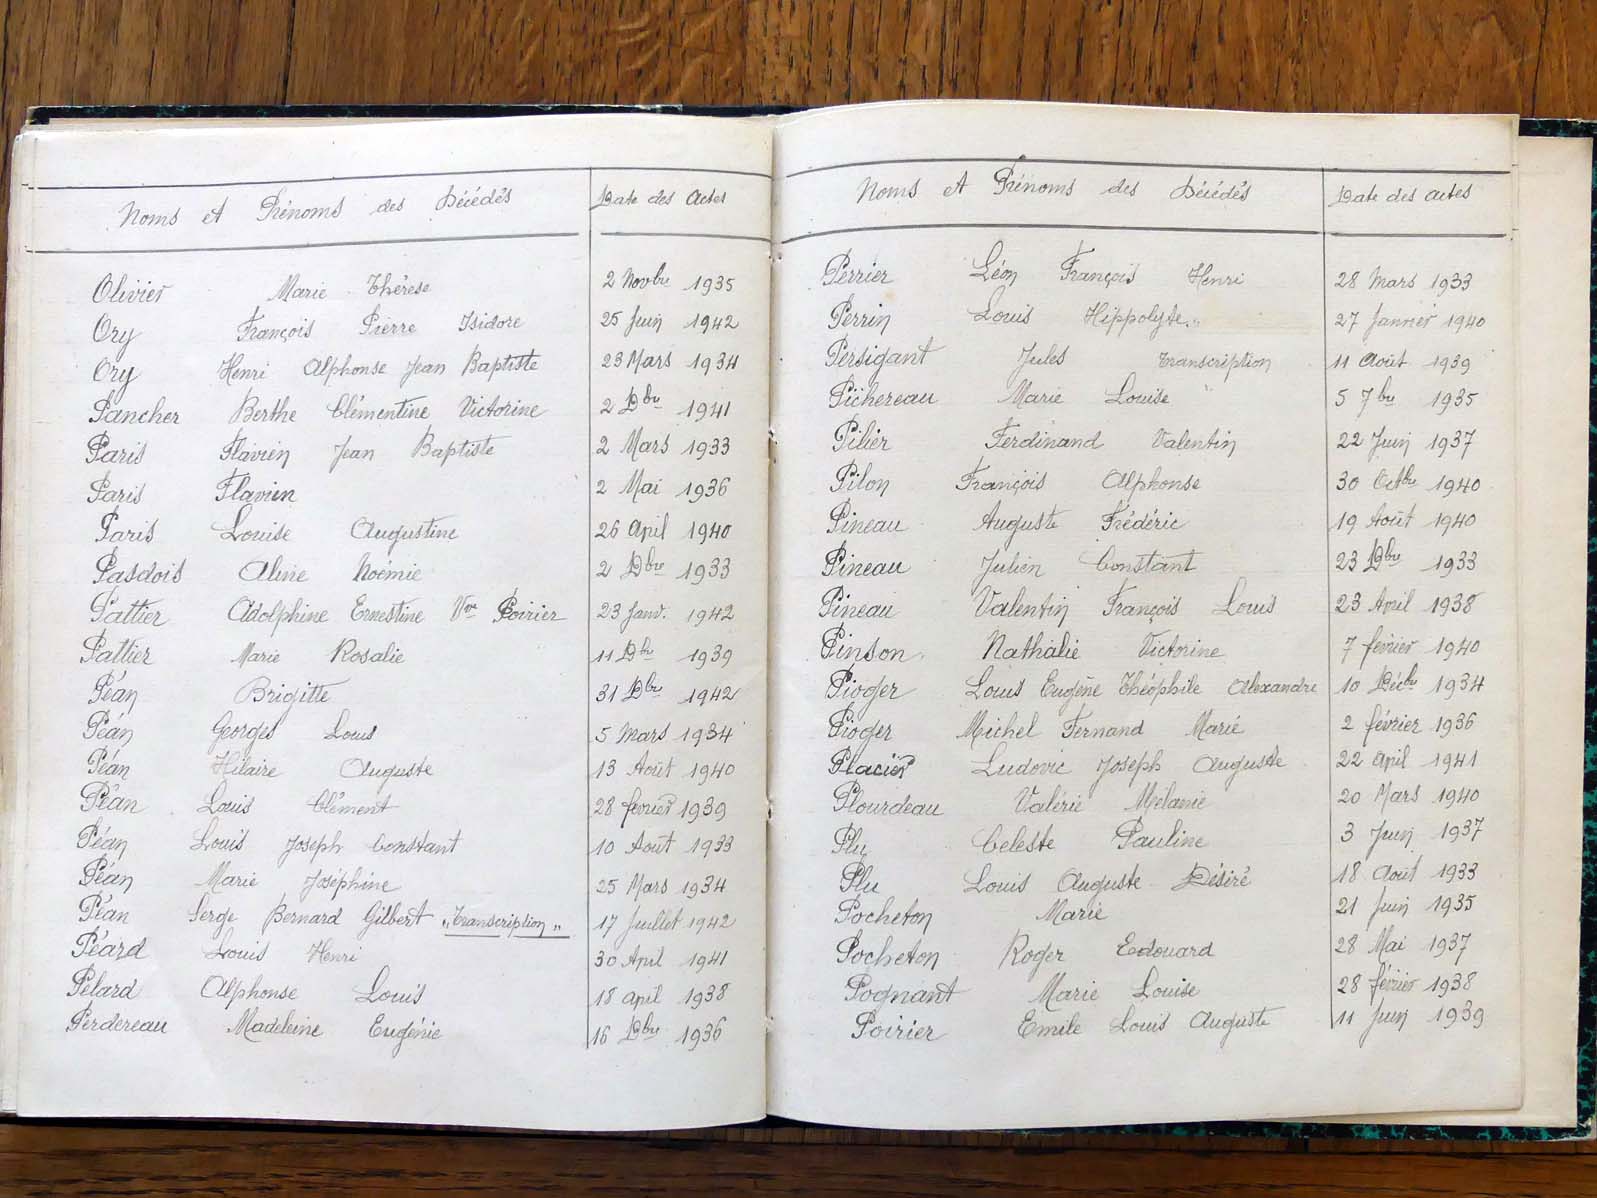 Noms et Prénoms des Décédés Date des Actes
Olivier Marie Thérèse 2 Novbre 1935
Ory François Pierre Isidore 25 Juin 1942
Ory Henri Alphonse Jean Baptiste 23 Mars 1934
Pancher Berthe Clémentine Victorine 2 Dbre 1941
Paris Flavien Jean Baptiste 2 Mars 1933
Paris Flavien 2 Mai 1936
Paris Louise Augustine 26 April 1940
Pasdois Aline Noémie 2 Dbre 1933
Pattier Adolphine Ernestine Vve Poirier 23 Janv. 1942
Pattier Marie Rosalie 11 Dbre 1939
Péan Brigitte 31 Dbre 1942
Péan Georges Louis 5 Mars 1934
Péan Hilaire Auguste 13 Août 1940
Péan Louis Clément 28 fevrier 1939
Péan Louis Joseph Constant 10 Août 1933
Péan Marie Joséphine 25 Mars 1934
Péan Serge Bernard Gilbert "Transcription" 17 Juillet 1942
Péard Louis Henri 30 April 1941
Pelard Alphonse Louis 18 april 1938
Perdereau Madeleine Eugénie 16 Dbre 1936
Noms et Prénoms des Décédés Date des actes
Perrier Léon François Henri 28 Mars 1933
Perrin Louis Hippolyte 27 Janvier 1940
Persigant Jules Transcription 11 Août 1939
Pichereau Marie Louise 5 7bre 1935
Pilier Ferdinand Valentin 22 Juin 1937
Pilon François Alphonse 30 Octbre 1940
Pineau Auguste Frédéric 19 Août 1940
Pineau Julien Constant 23 Dbre 1933
Pineau Valentin François Louis 23 April 1938
Pinson Nathalie Victorine 7 fevrier 1940
Pioger Louis Eugène Théophile Alexandre 10 Décbre 1934
Pioger Michel Fernand Marie 2 février 1936
Placier Ludovic Joseph Auguste 22 april 1941
Plourdeau Valérie Mélanie 20 Mars 1940
Plu Celeste Pauline 3 Juin 1937
Plu Louis Auguste Désiré 18 Août 1933
Pocheton Marie 21 Juin 1935
Pocheton Roger Edouard 28 Mai 1937
Pognant Marie Louise 28 février 1938
Poirier Emile Louis Auguste 11 Juin 1939